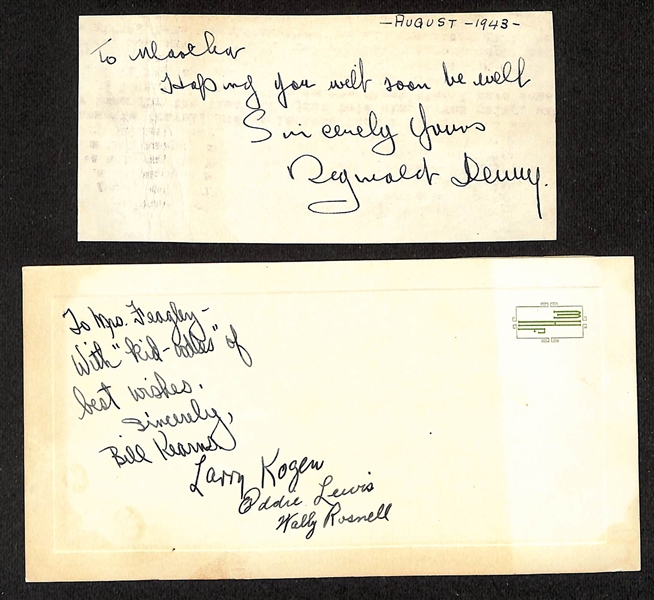 - AUGUST - 1943 -
To Martha
Hoping you will soon be well
Sincerely Yours
Reginald Denny.
To Mrs. Feagley -
With "kid- " of
best wishes.
Sincerely,
Bill Kearns
Larry Kogen
Eddie Lewis
Wally Rosnell